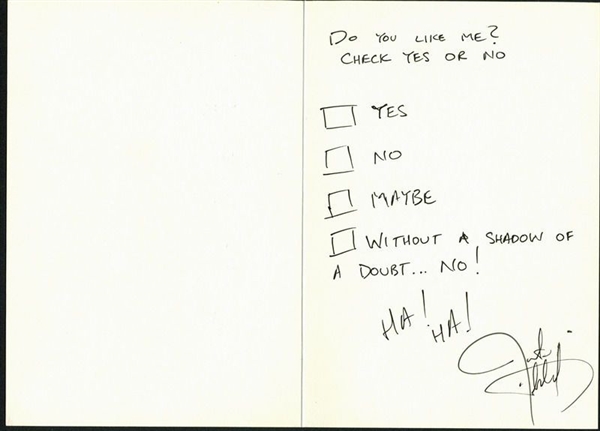 DO YOU LIKE ME?
CHECK YES OR NO
YES
NO
MAYBE
WITHOUT A SHADOW OF
A DOUBT... NO!
HA!
HA!